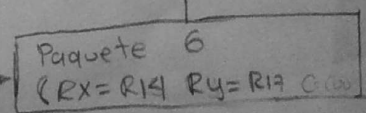 Paquete 6
(RX=R14 Ry=R17